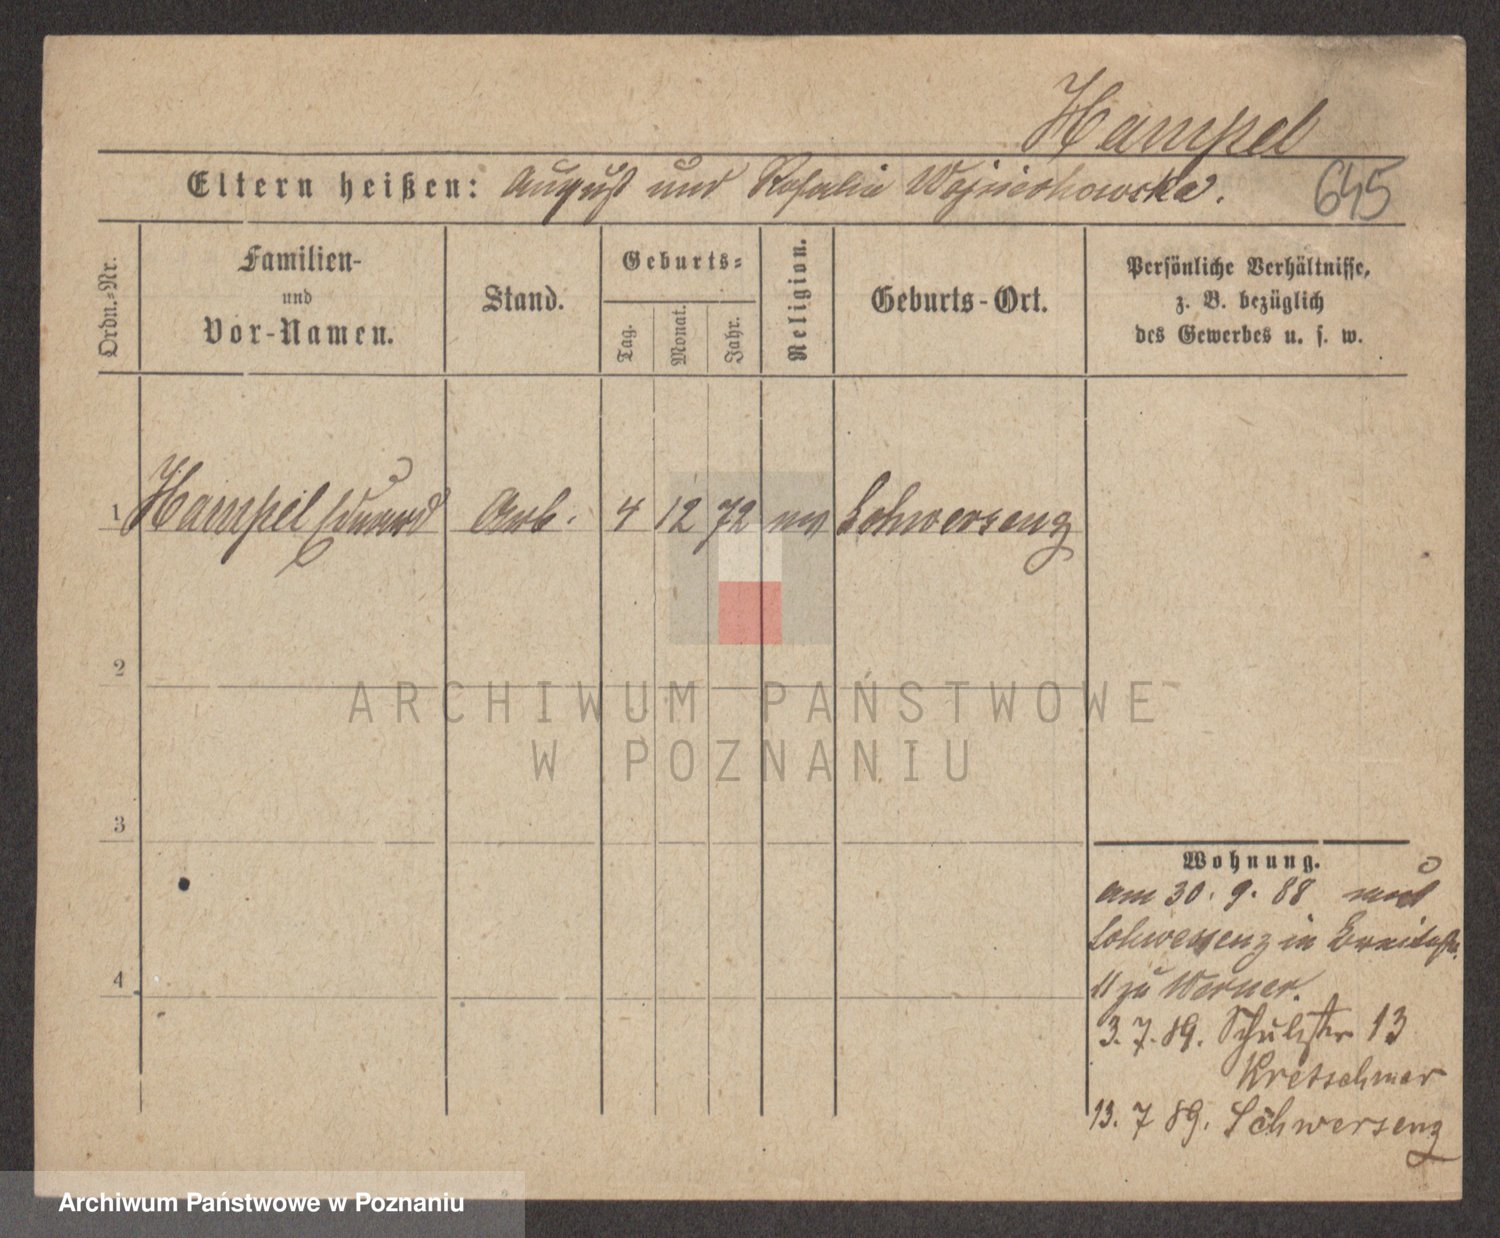 Hampel
Eltern heißen: August und Rosalie Wojciechowska.
645
Ordn.=Nr.
Familien-
und
Vor-Namen.
Stand.
Geburts=
Tag.
Monat.
Jahr.
Religion.
Geburts-Ort.
Persönliche Verhältnisse,
z. B. bezüglich
des Gewerbes u. s. w.
1 Hampel Eduard Arb. 4 12 72 Schwersenz
2
3
4
ARCHIWUM PAŃSTWOWE
W POZNANIU
Wohnung.
am 30. 9. 88
Schwersenz in Breitestr.
11 zu Werner.
3. 7. 89. Schulstr 13
Kretschmer
13. 7 89. Schwersenz
Archiwum Państwowe w Poznaniu